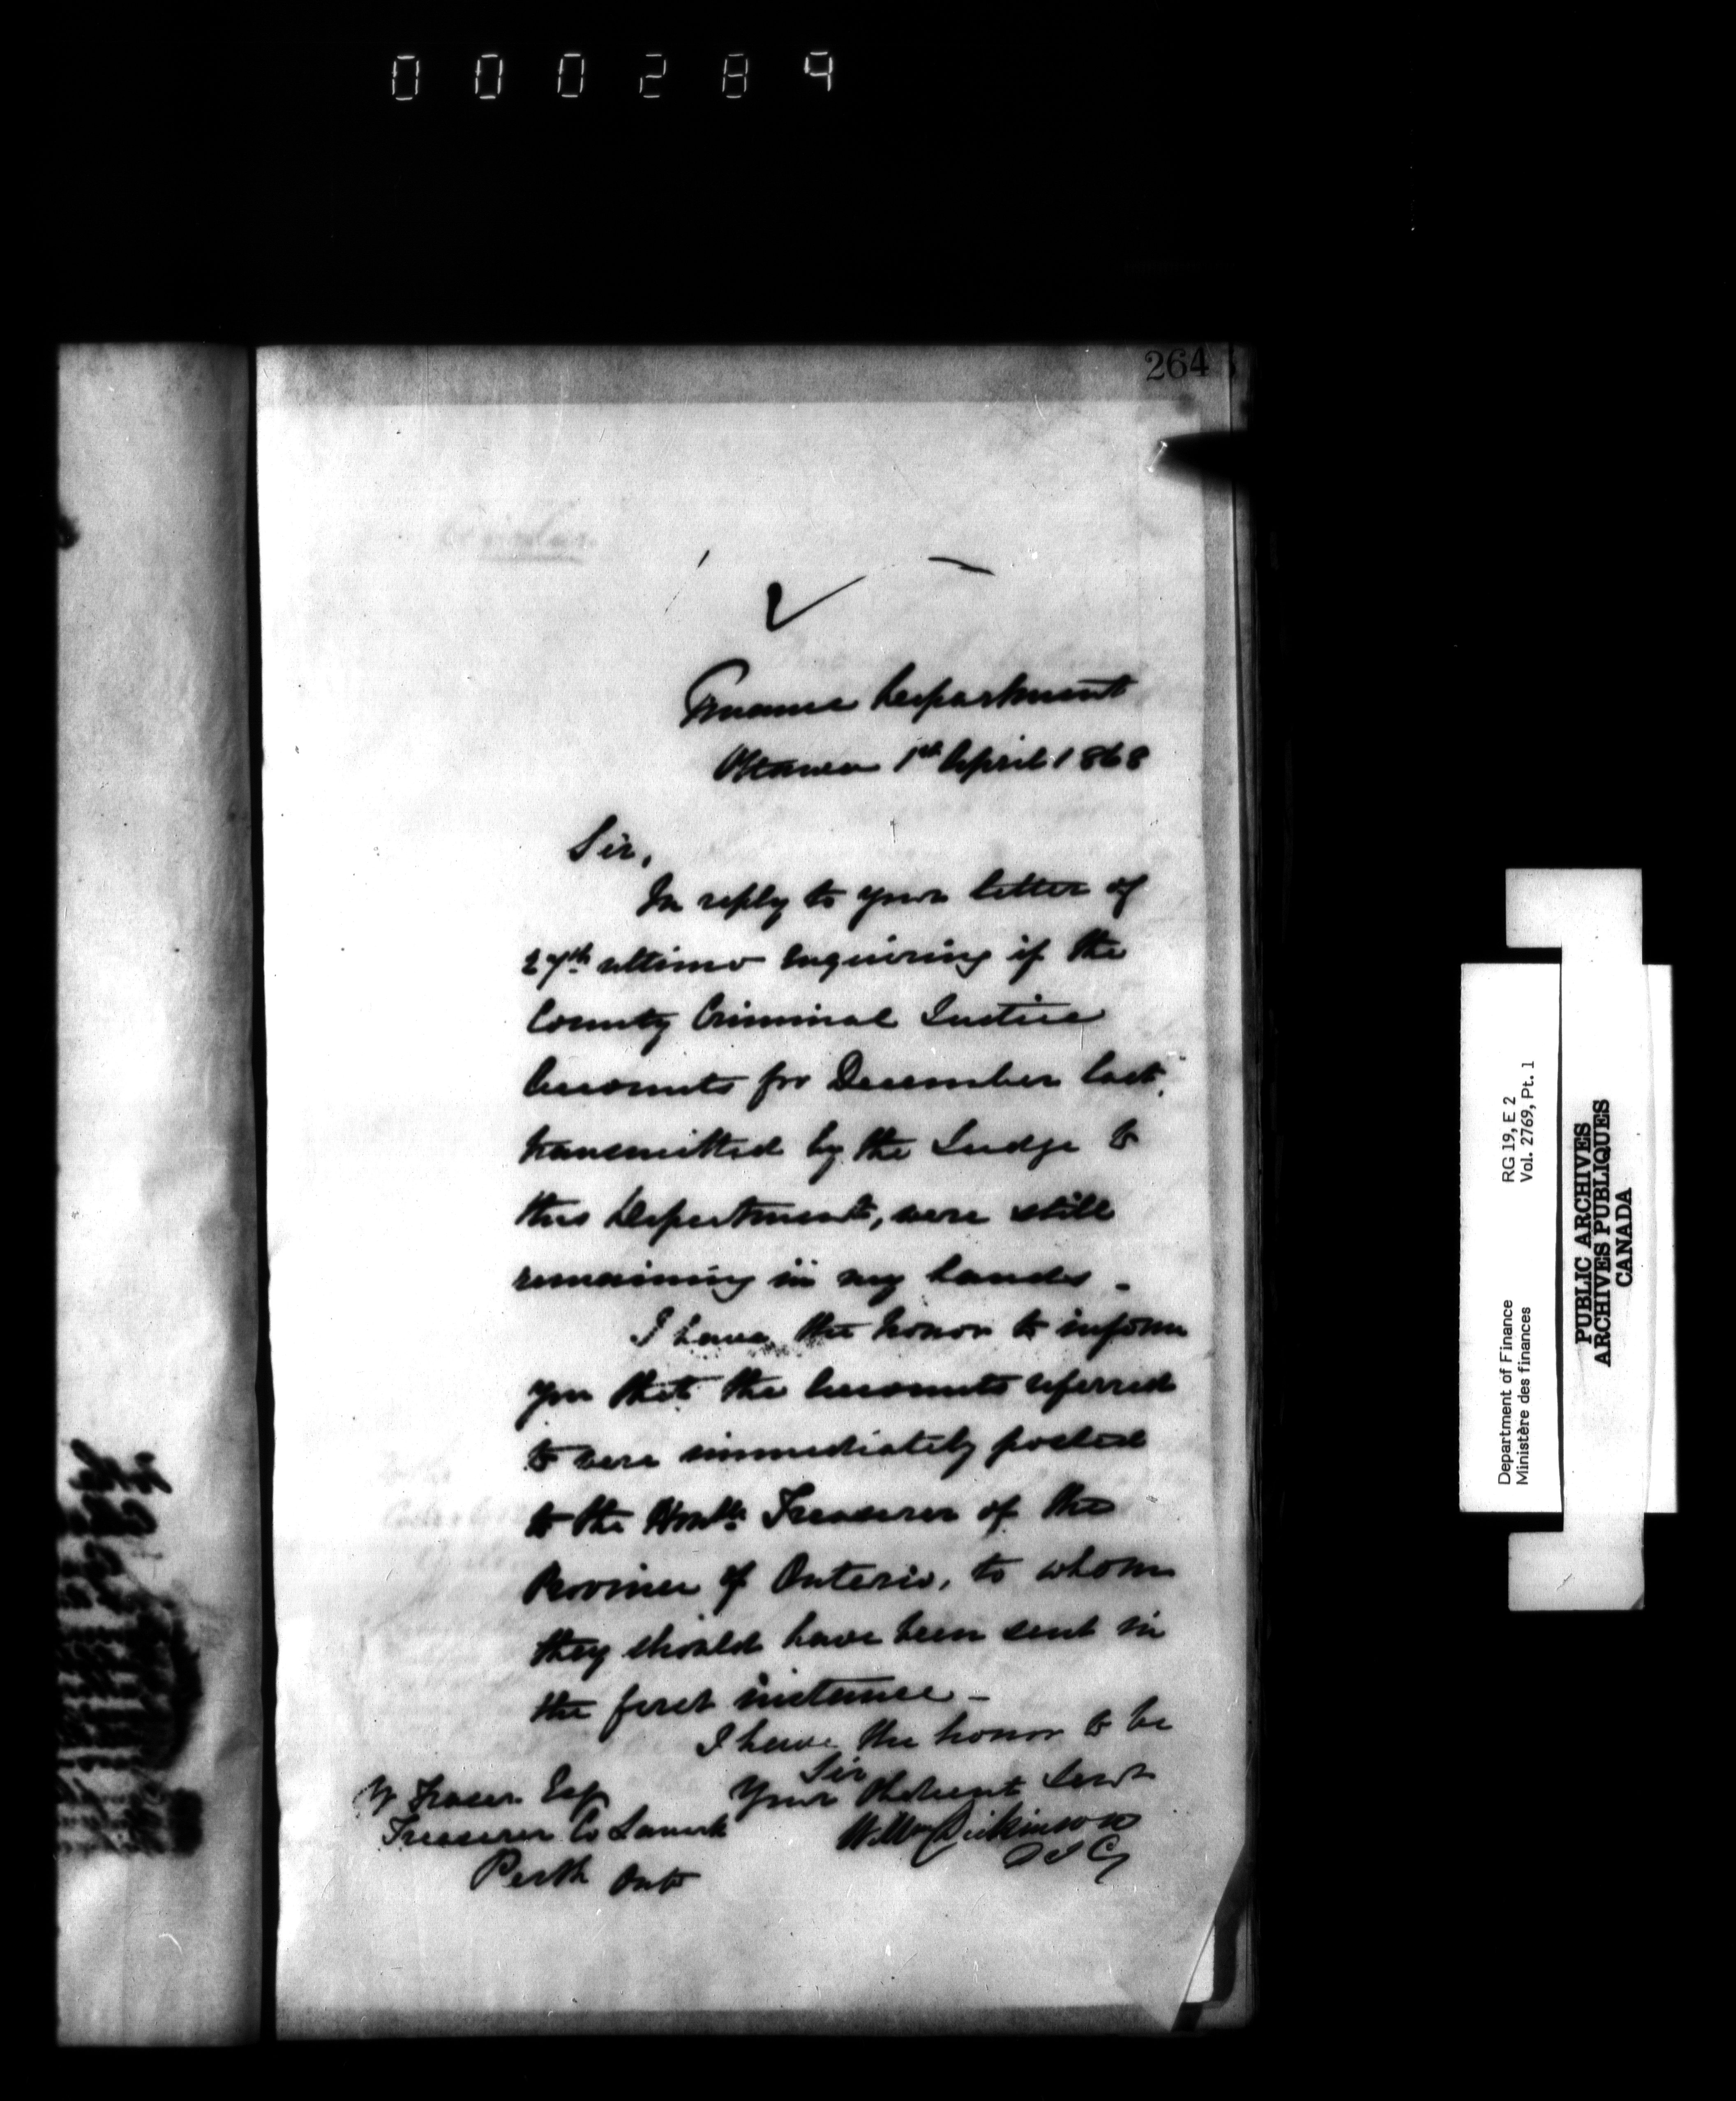 000289
264
Finance Department
Ottawa 1st April 1868
Sir,
In reply to your letter of
27th ultimo enquiring if the
County Criminal Justice
Accounts for December last,
transmitted by the Judge to
this Department, were still
remaining in my hands -
I have the honor to inform
you that the Accounts referred
to were immediately posted
to the Honble Treasurer of the
Province of Ontario, to whom
they should have been sent in
the first instance -
I have the honor to be
Sir
Your Obedient Servt
Wm Dickinson
W Fraser Esq
Treasurer Co Lanark
Perth Ont
Department of Finance
Ministère des finances
RG 19, E 2
Vol. 2769, Pt. 1
PUBLIC ARCHIVES
ARCHIVES PUBLIQUES
CANADA